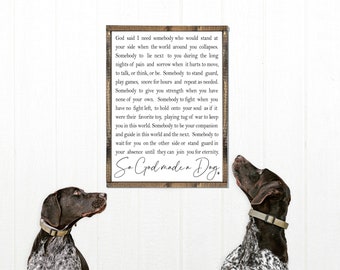 God said I need somebody who would stand at
your side when the world around you collapses.
Somebody to lie next to you during the long
nights of pain and sorrow when it hurts to move,
to talk, or think, or be. Somebody to stand guard,
play games, snore for hours and repeat as needed.
Somebody to give you strength when you have
none of your own. Somebody to fight when you
have no fight left, to hold onto your soul as if it
were their favorite toy, playing tug of war to keep
you in this world. Somebody to be your companion
and guide in this world and the next. Somebody to
wait for you on the other side or stand guard in
your absence until they can join you for eternity.
So God made a Dog.